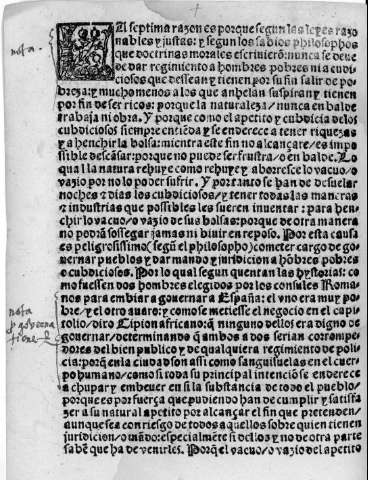 nota.
La septima razon es porque segun las leyes razo
nables y justas: y segun los sabios philosophos
que doctrinas morales escriuierõ: nunca se deue
de dar regimiẽto a hombres pobres ni a cudi
ciosos que dessean y tienen por su fin salir de po
breza: y mucho menos a los que anhelan suspiran y tienen
por fin de ser ricos: porque la naturaleza / nunca en balde
trabaja ni obra. Y porque como el apetito y cubdicia delos
cubdiciosos siempre entiẽda y se enderece a tener riquezas
y a henchir la bolsa: mientra este fin no alcançare / es impos
sible descãsar: porque no puede ser frustra / o en balde. Lo
qual la natura rehuye como rehuye y aborresce lo vacuo / o
vazio por no lo poder sufrir. Y por tanto se han de desuelar
noches & dias los cubdiciosos / y tener todas las maneras
& industrias que possibles les fueren inuentar: para hen-
chir lo vacuo / o vazio de sus bolsas: porque de otra manera
no podrã sossegar jamas ni biuir en reposo. Por esta causa
es peligrosissimo (segũ el philosopho) cometer cargo de go
uernar pueblos y dar mando y juridicion a hõbres pobres
o cubdiciosos. Por lo qual segun quentan las hystorias: co
mo fuessen dos hombres elegidos por los consules Roma-
nos para embiar a gouernar a España: el vno era muy po
bre / y el otro auaro: y como se metiesse el negocio en el capi
tolio / dixo Cipion africano: q̃ ninguno dellos era digno de
gouernar / determinando q̃ ambos a dos serian corrompe
dores del bien publico y de qualquiera regimiento de poli
cia: porq̃ en la ciudad son assi como sanguisuelas en el cuer
po humano / como su todo su principal intẽciõ se enderece
a chupar y embeuer en si la substancia de todo el pueblo /
porque es por fuerça que pudiendo han de cumplir y satisfa
zer a su natural apetito por alcançar el fin que pretenden /
aunque sea con riesgo de todos aquellos sobre quien tienen
juridicion / o mãdo: especialmẽte si dellos y no de otra parte
sabẽ que ha de venirles. Porq̃ el vacuo / o vazio del apetito
nota